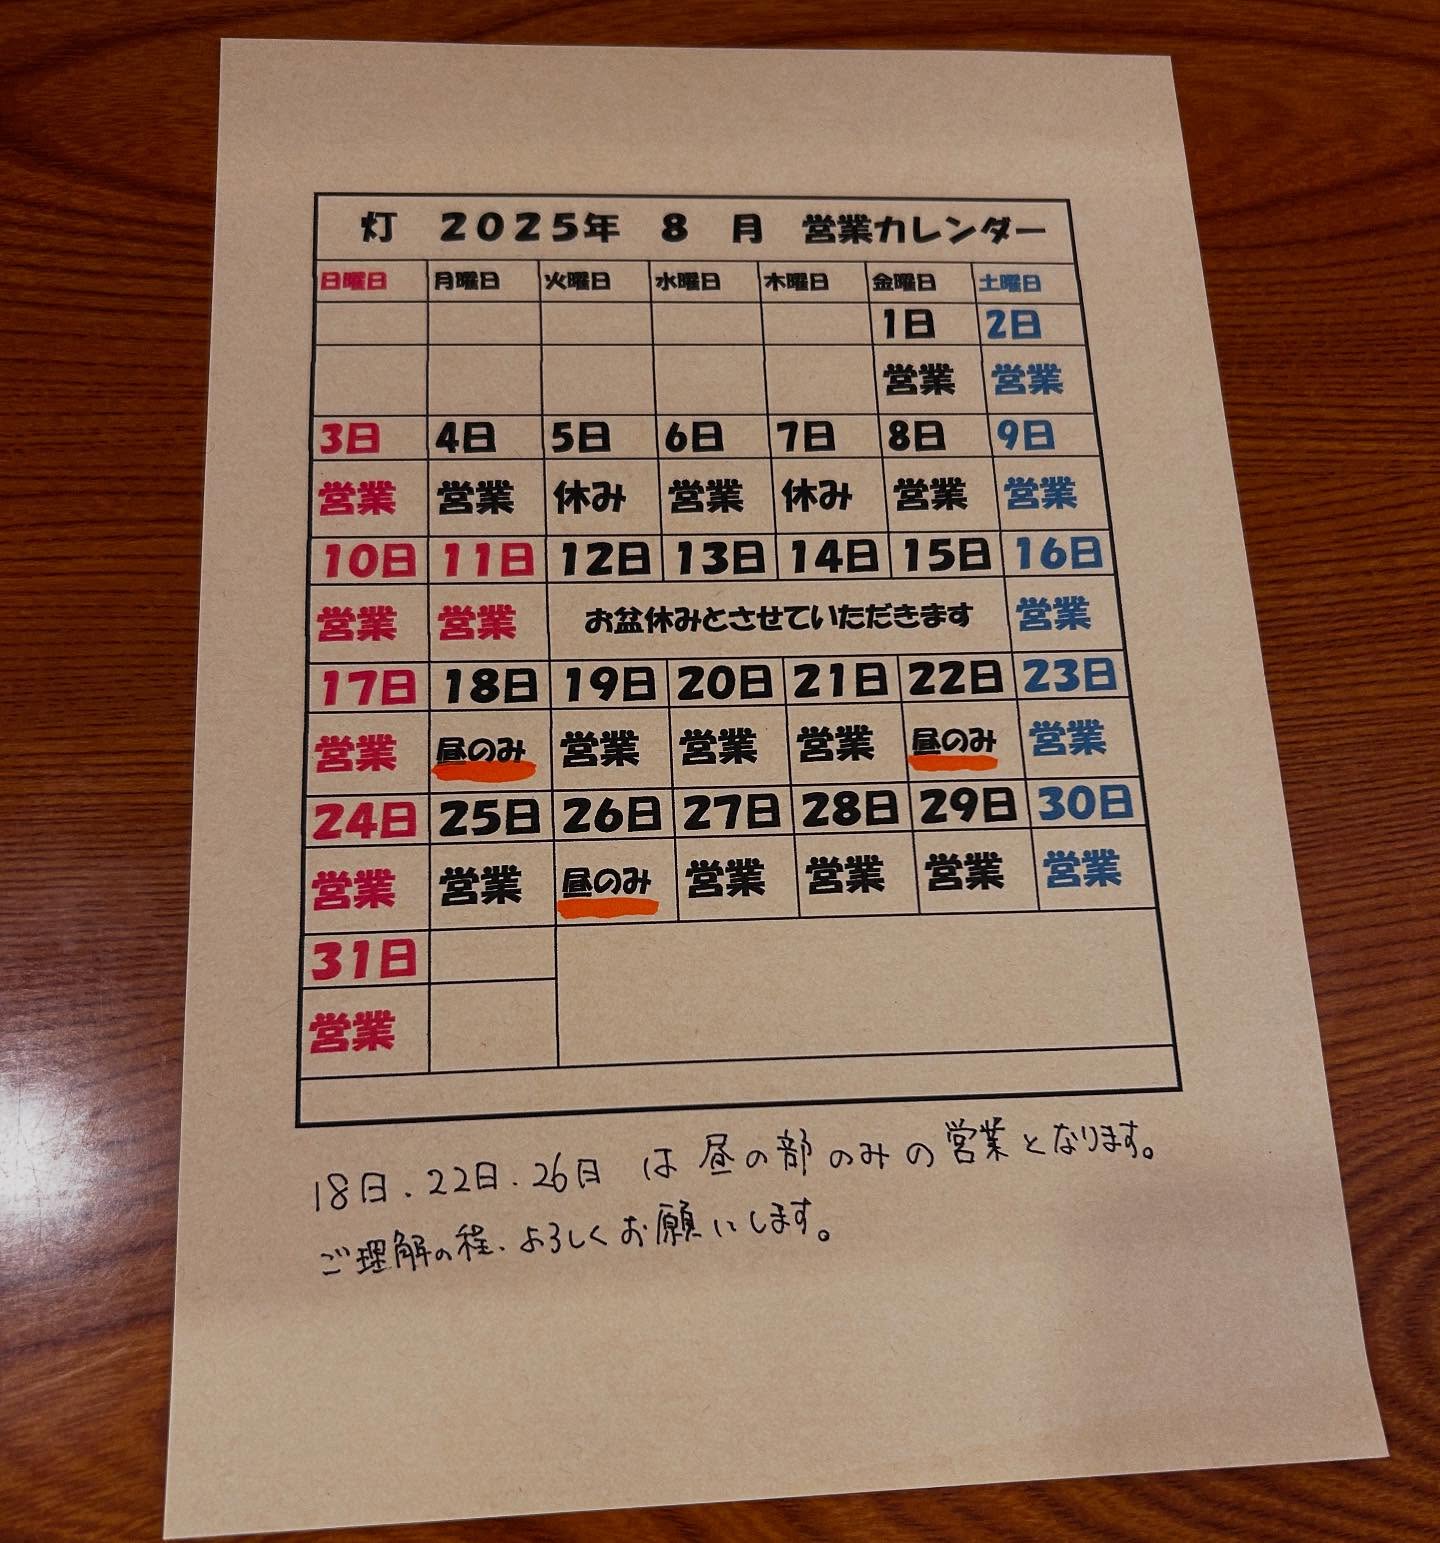 灯 2025年 8 月 営業カレンダー
日曜日 月曜日 火曜日 水曜日 木曜日 金曜日 土曜日
1日 2日
営業 営業
3日 4日 5日 6日 7日 8日 9日
営業 営業 休み 営業 休み 営業 営業
10日 11日 12日 13日 14日 15日 16日
営業 営業 お盆休みとさせていただきます 営業
17日 18日 19日 20日 21日 22日 23日
営業 昼のみ 営業 営業 営業 昼のみ 営業
24日 25日 26日 27日 28日 29日 30日
営業 営業 昼のみ 営業 営業 営業 営業
31日
営業
18日.22日.26日 は 昼の部のみの営業となります。
ご理解の程、よろしくお願いします。